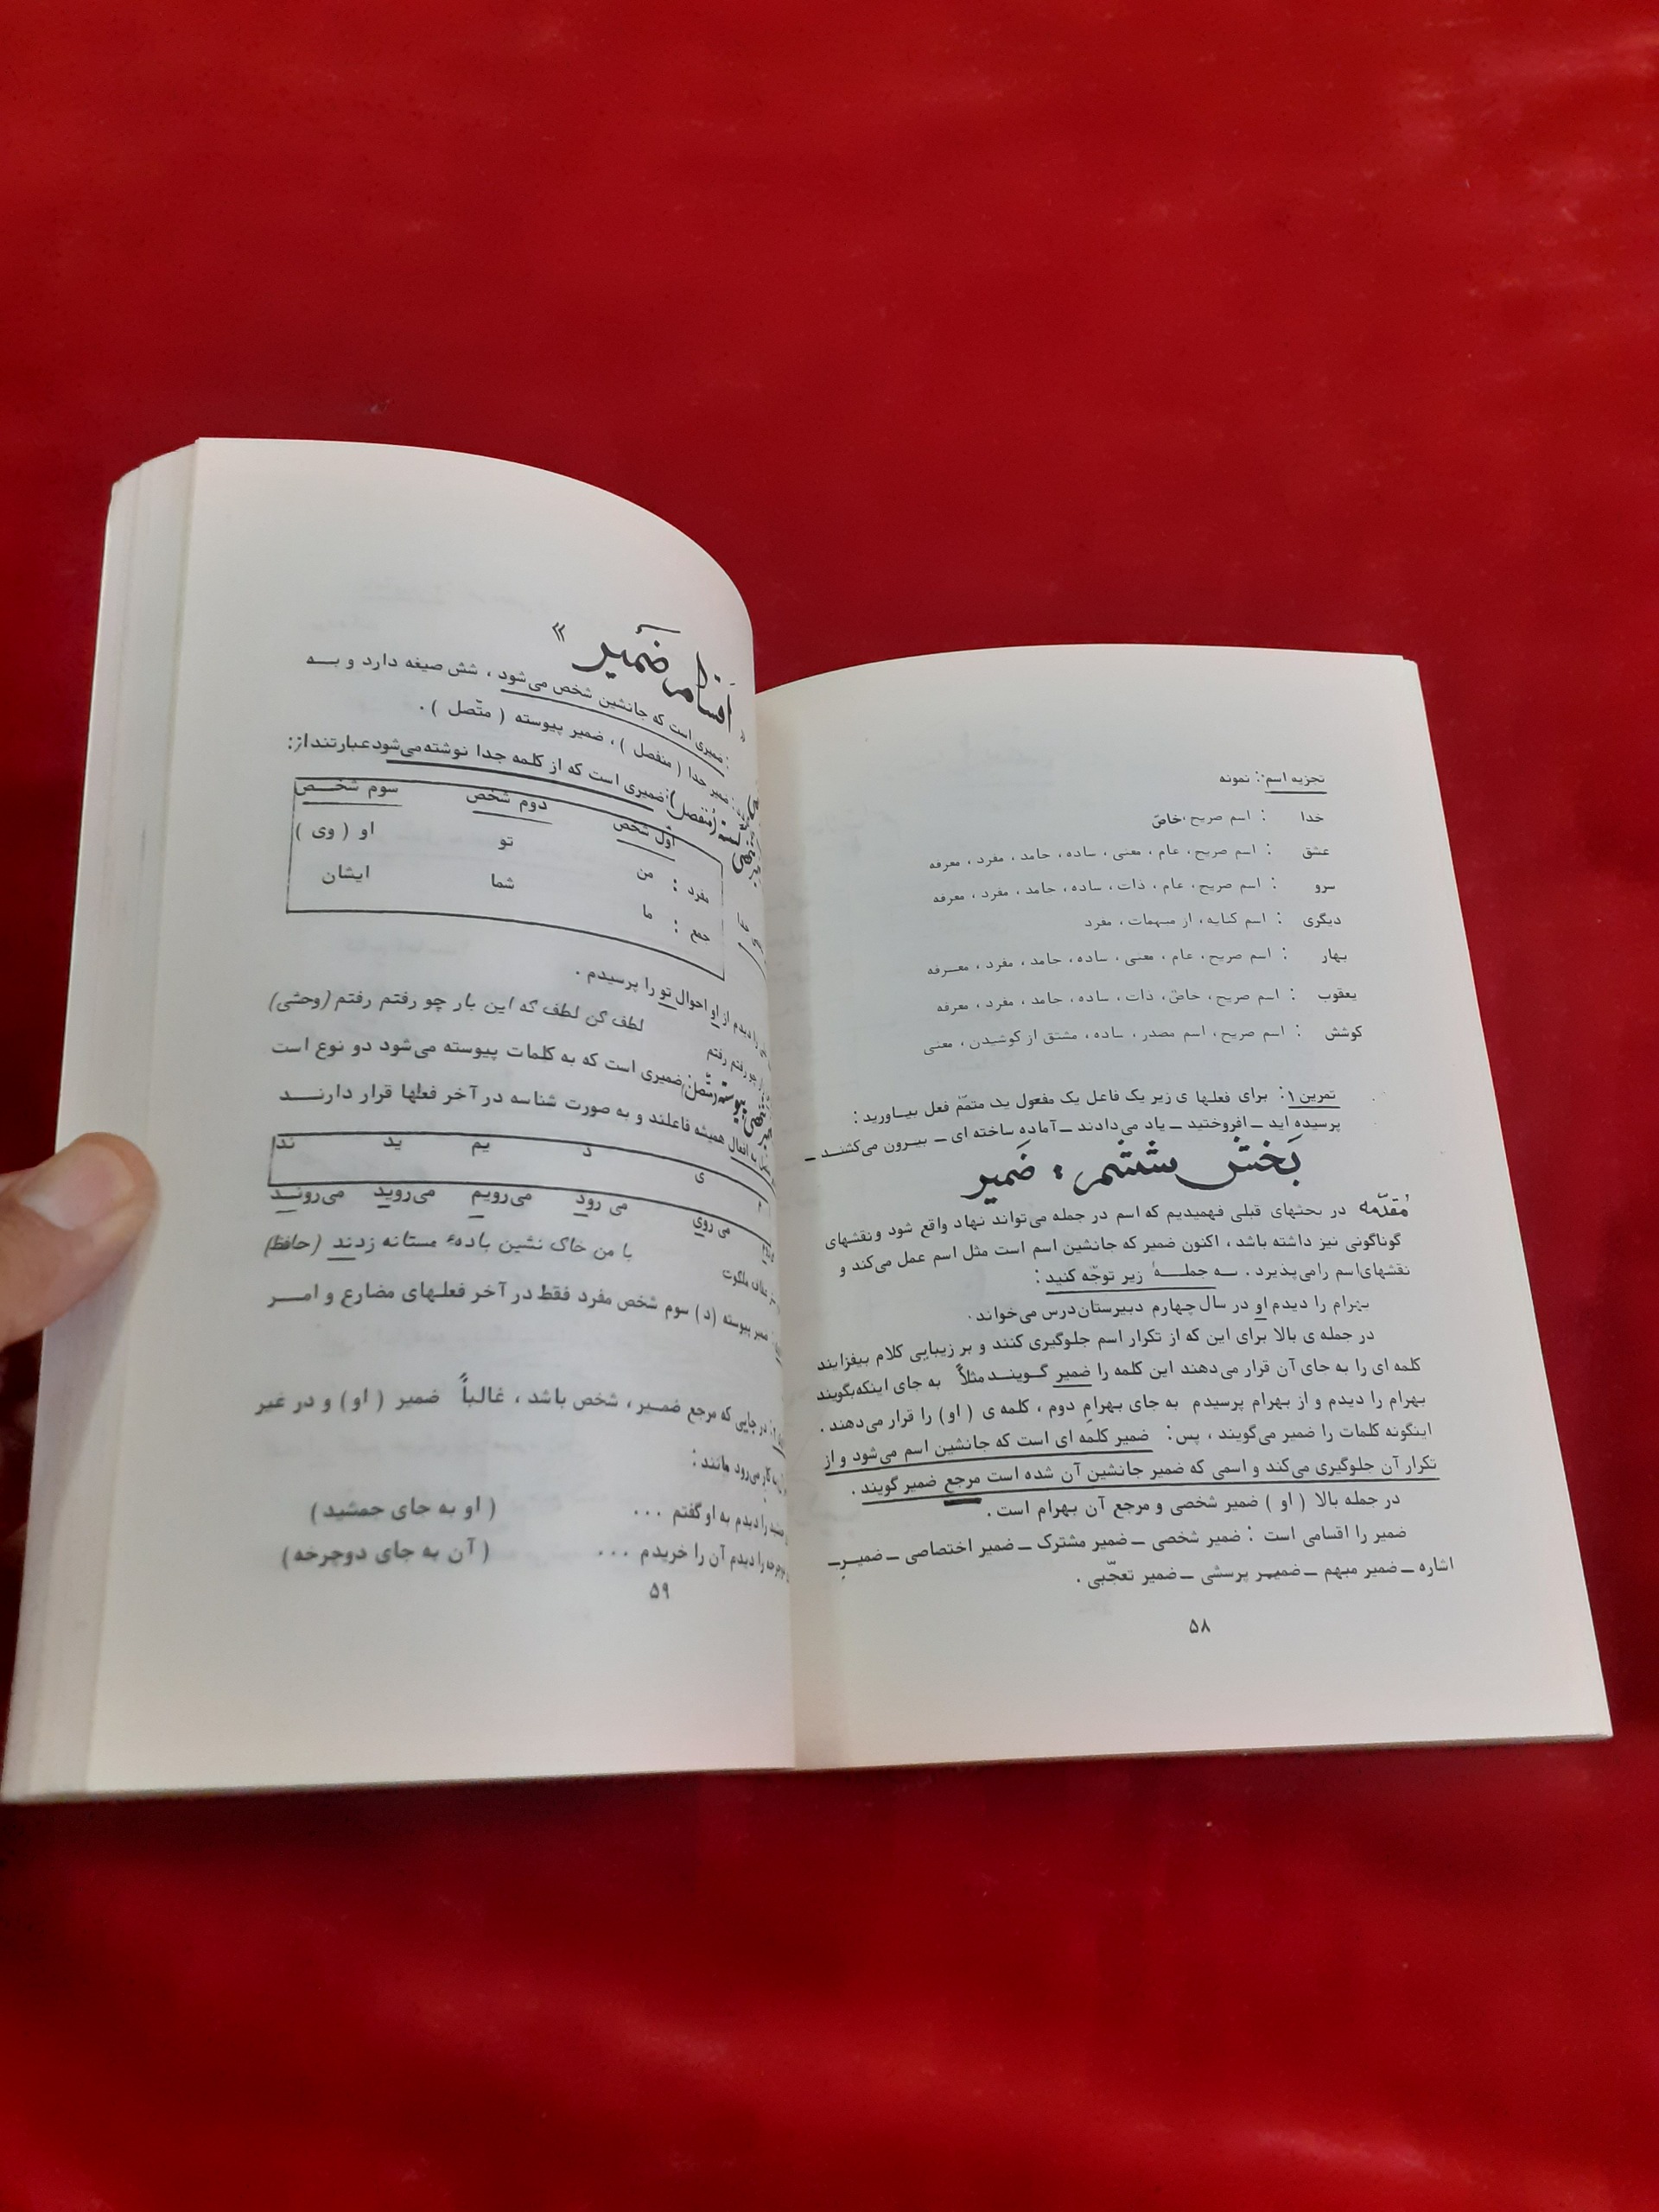 تجزیه اسم: نمونه
خدا : اسم صریح، خاصّ
عشق : اسم صریح، عام، معنی، ساده، جامد، مفرد، معرفه
سرو : اسم صریح، عام، ذات، ساده، جامد، مفرد، معرفه
دیگری : اسم کنایه، از مبهمات، مفرد
بهار : اسم صریح، عام، معنی، ساده، جامد، مفرد، معرفه
یعقوب : اسم صریح، خاصّ، ذات، ساده، جامد، مفرد، معرفه
کوشش : اسم صریح، اسم مصدر، ساده، مشتق از کوشیدن، معنی
تمرین ۱: برای فعلهای زیر یک فاعل یک مفعول یک متمّم فعل بیاورید:
پرسیده اید – افروختید – یاد می‌دادند – آماده ساخته ای – بیرون می‌کشند –
بَخش شِشم : ضَمیر
مُقدّمه در بحثهای قبلی فهمیدیم که اسم در جمله می‌تواند نهاد واقع شود و نقشهای
گوناگونی نیز داشته باشد، اکنون ضمیر که جانشین اسم است مثل اسم عمل می‌کند و
نقشهای اسم را می‌پذیرد. به جملهٔ زیر توجّه کنید:
بهرام را دیدم او در سال چهارم دبیرستان درس می‌خواند.
در جمله ی بالا برای این که از تکرار اسم جلوگیری کنند و بر زیبایی کلام بیفزایند
کلمه ای را به جای آن قرار می‌دهند این کلمه را ضمیر گویند مثلاً به جای اینکه بگویند
بهرام را دیدم و از بهرام پرسیدم به جای بهرام دوم، کلمه ی (او) را قرار می‌دهند.
اینگونه کلمات را ضمیر می‌گویند، پس: ضمیر کلمه ای است که جانشین اسم می‌شود و از
تکرار آن جلوگیری می‌کند و اسمی که ضمیر جانشین آن شده است مرجع ضمیر گویند.
در جمله بالا (او) ضمیر شخصی و مرجع آن بهرام است.
ضمیر را اقسامی است: ضمیر شخصی – ضمیر مشترک – ضمیر اختصاصی – ضمیر –
اشاره – ضمیر مبهم – ضمیر پرسشی – ضمیر تعجّبی.
۵۸
« اَقسام ضَمیر »
: ضمیری است که جانشین شخص می‌شود، شش صیغه دارد و به
: ضمیر جدا (منفصل)، ضمیر پیوسته (متّصل).
(مُنفصل): ضمیری است که از کلمه جدا نوشته می‌شود عبارتند از:
اوّل شخص دوم شخص سوم شخص
مفرد : من تو او (وی)
جمع : ما شما ایشان
را دیدم از او احوال تو را پرسیدم.
چو رفتم رفتم لطف کن لطف که این بار چو رفتم رفتم (وحشی)
پیوسته (متّصل): ضمیری است که به کلمات پیوسته می‌شود دو نوع است
به افعال همیشه فاعلند و به صورت شناسه در آخر فعلها قرار دارند
م ی د یم ید ند
می روی می رود می‌رویم می‌روید می‌روند
ملکوت با من خاک نشین بادهٔ مستانه زدند (حافظ)
پیوسته (د) سوم شخص مفرد فقط در آخر فعلهای مضارع و امر
در جایی که مرجع ضمیر، شخص باشد، غالباً ضمیر (او) و در غیر
به کار می‌رود مانند:
را دیدم به او گفتم ... (او به جای جمشید)
را دیدم آن را خریدم ... (آن به جای دوچرخه)
۵۹